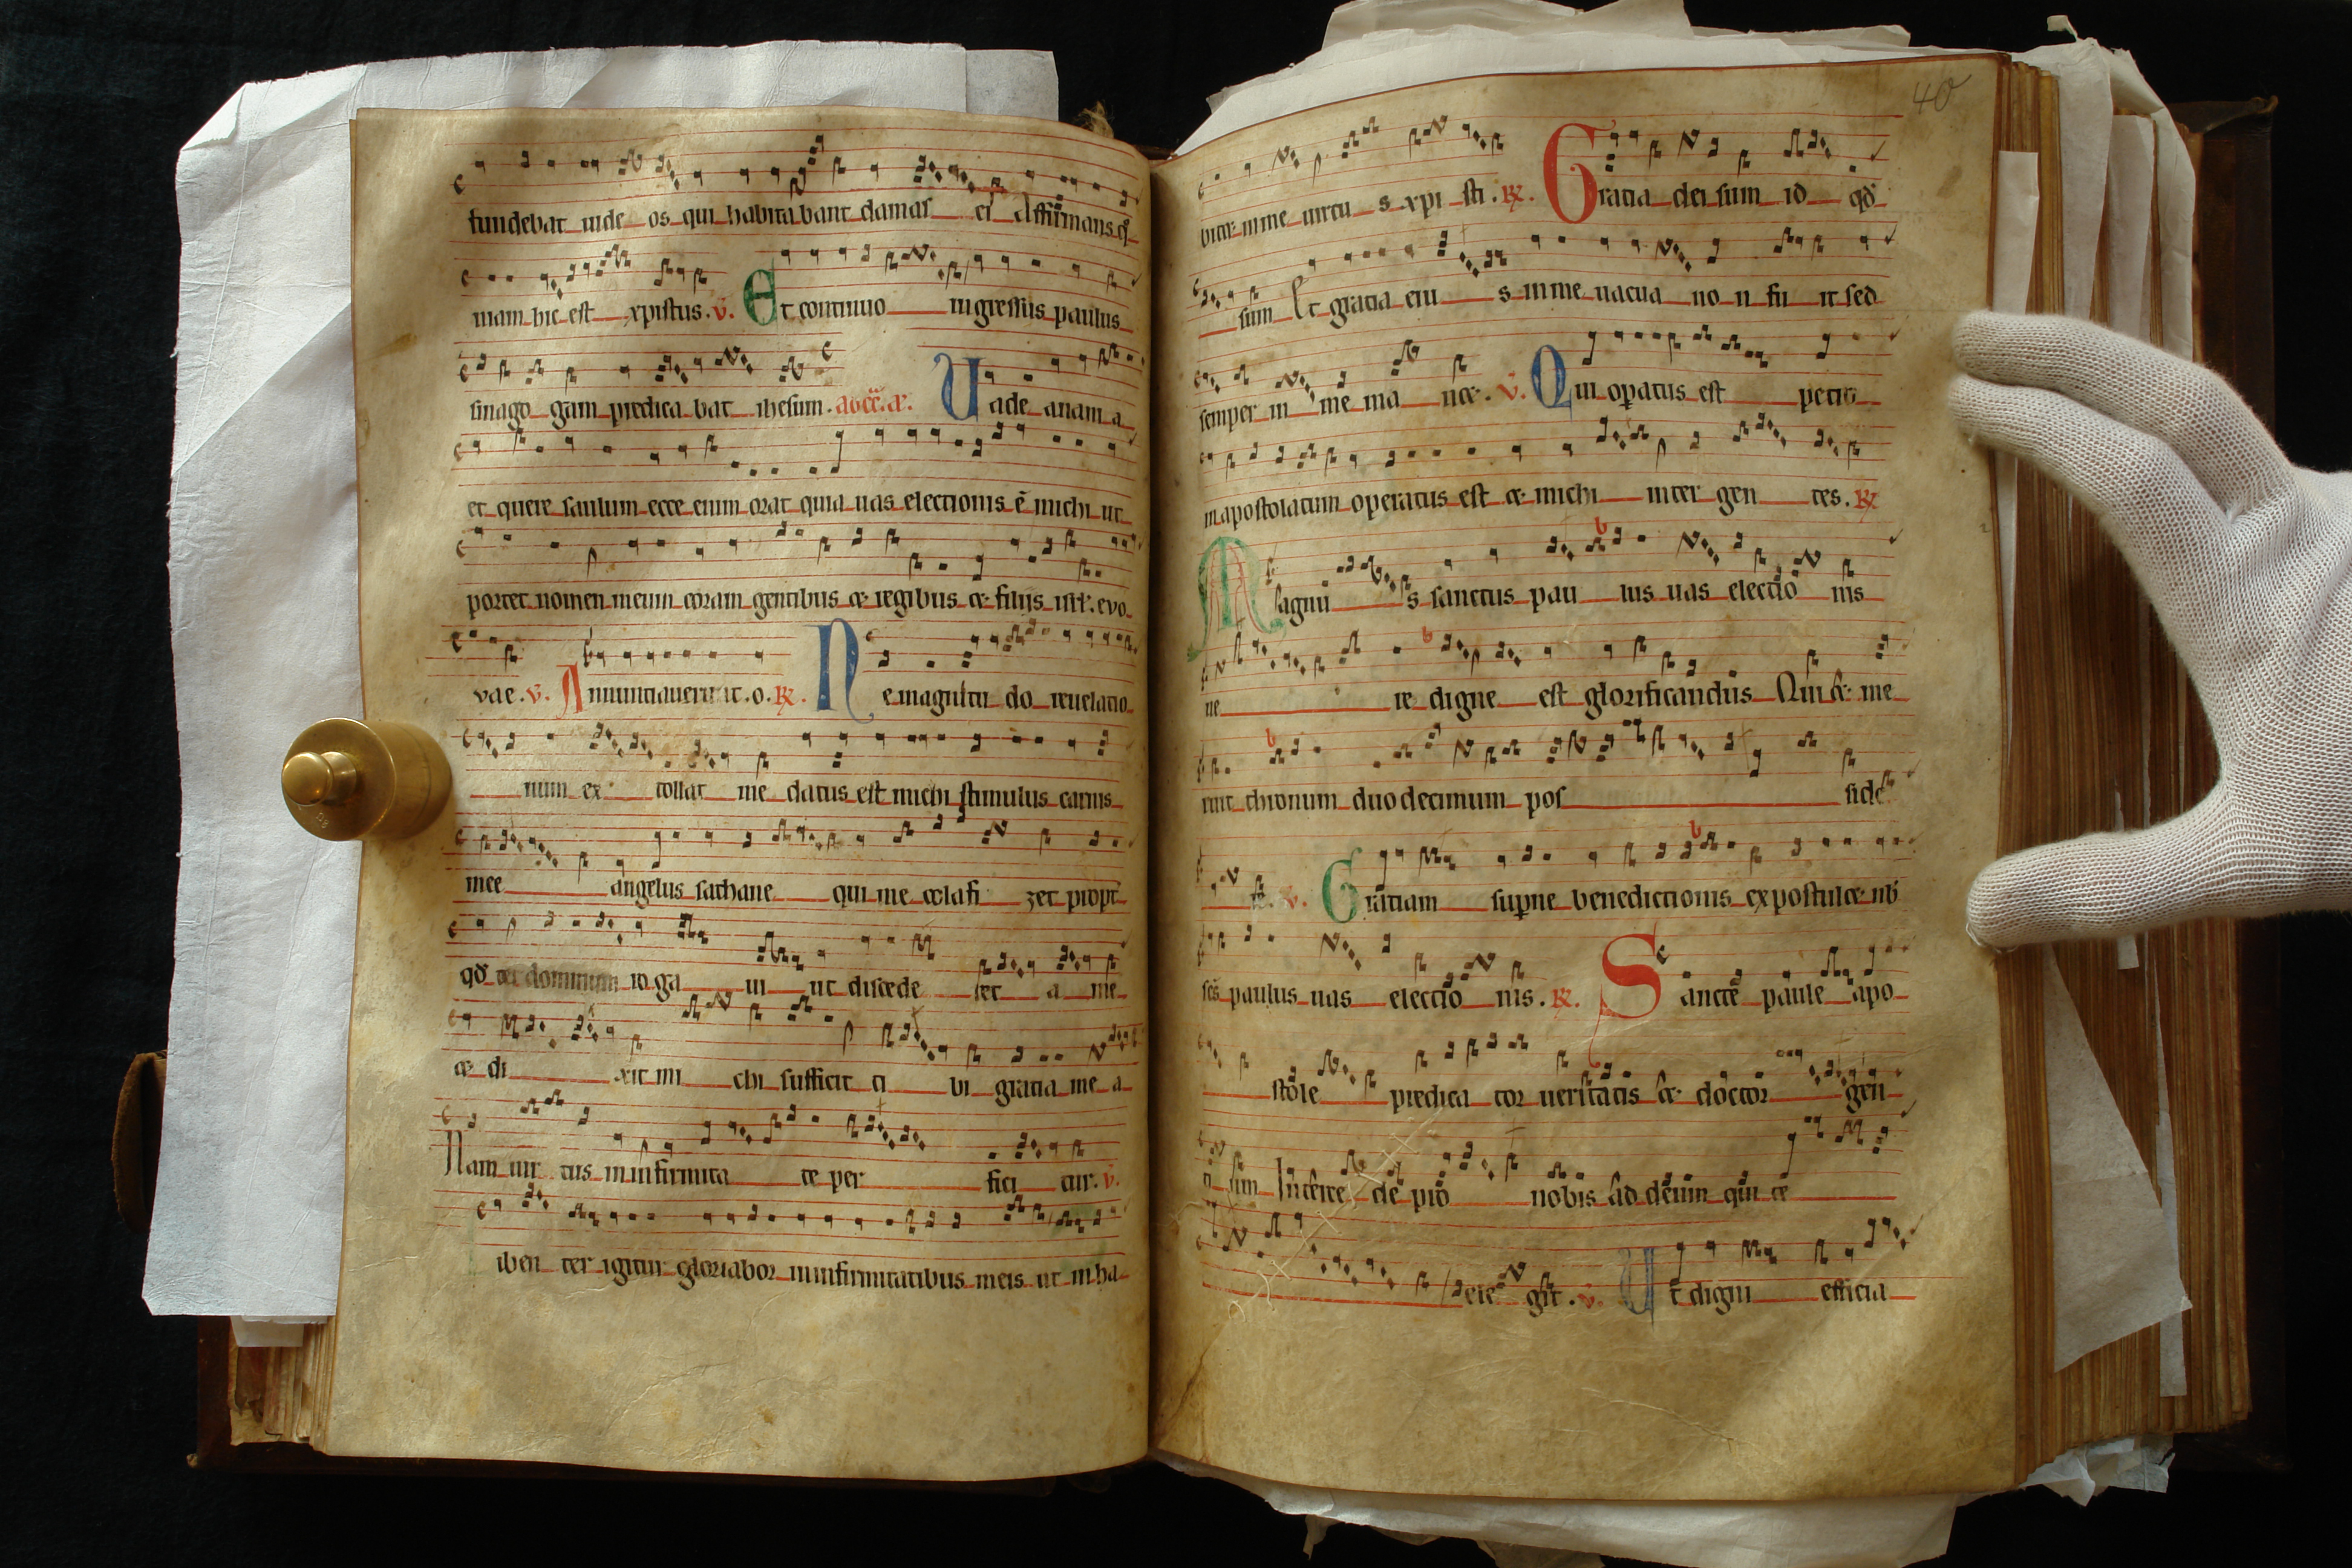 fundebat iude os qui habita bant damas ci Affirmans q̄
niam hic est xpistus. v. Et continuo ingressus paulus
sinago gam predica bat ihesum. Uade anania
et quere saulum ecce enim orat quia uas electionis ē michi ut
portet nomen meum coram gentibus et regibus et filijs isrl. evo
vae. v. Annuntiaverunt. o. R. Ne magnitu do reuelatio
num ex tollat me datus est michi stimulus carnis
mee angelus sathane qui me colafi zet propt
qđ ter dominum ro ga ui ut discede ret a me
et di xit mi chi sufficit ti bi gratia me a
Nam uir tus in infirmita te per fici tur. v.
iben ter igitur gloriabor in infirmitatibus meis ut inha
40
bitet in me uirtu s xpi sti. R. Gratia dei sum id qđ
sum Et gratia eiu s in me uacua no n fu it sed
semper in me ma net. v. Qui opatus est petro
in apostolatum operatus est et michi inter gen tes. R
Magnu s sanctus pau lus uas electio nis
ue re digne est glorificandus Qui et me
ruit thronum duodecimum pos side
re. v. Gratiam supne benedictionis expostulet nob
ses paulus uas electio nis. R. Sancte paule apo
stole predica tor ueritatis et doctor gen
ti um Interce de pro nobis ad deum qui te
ele git. v. Ut digni efficia